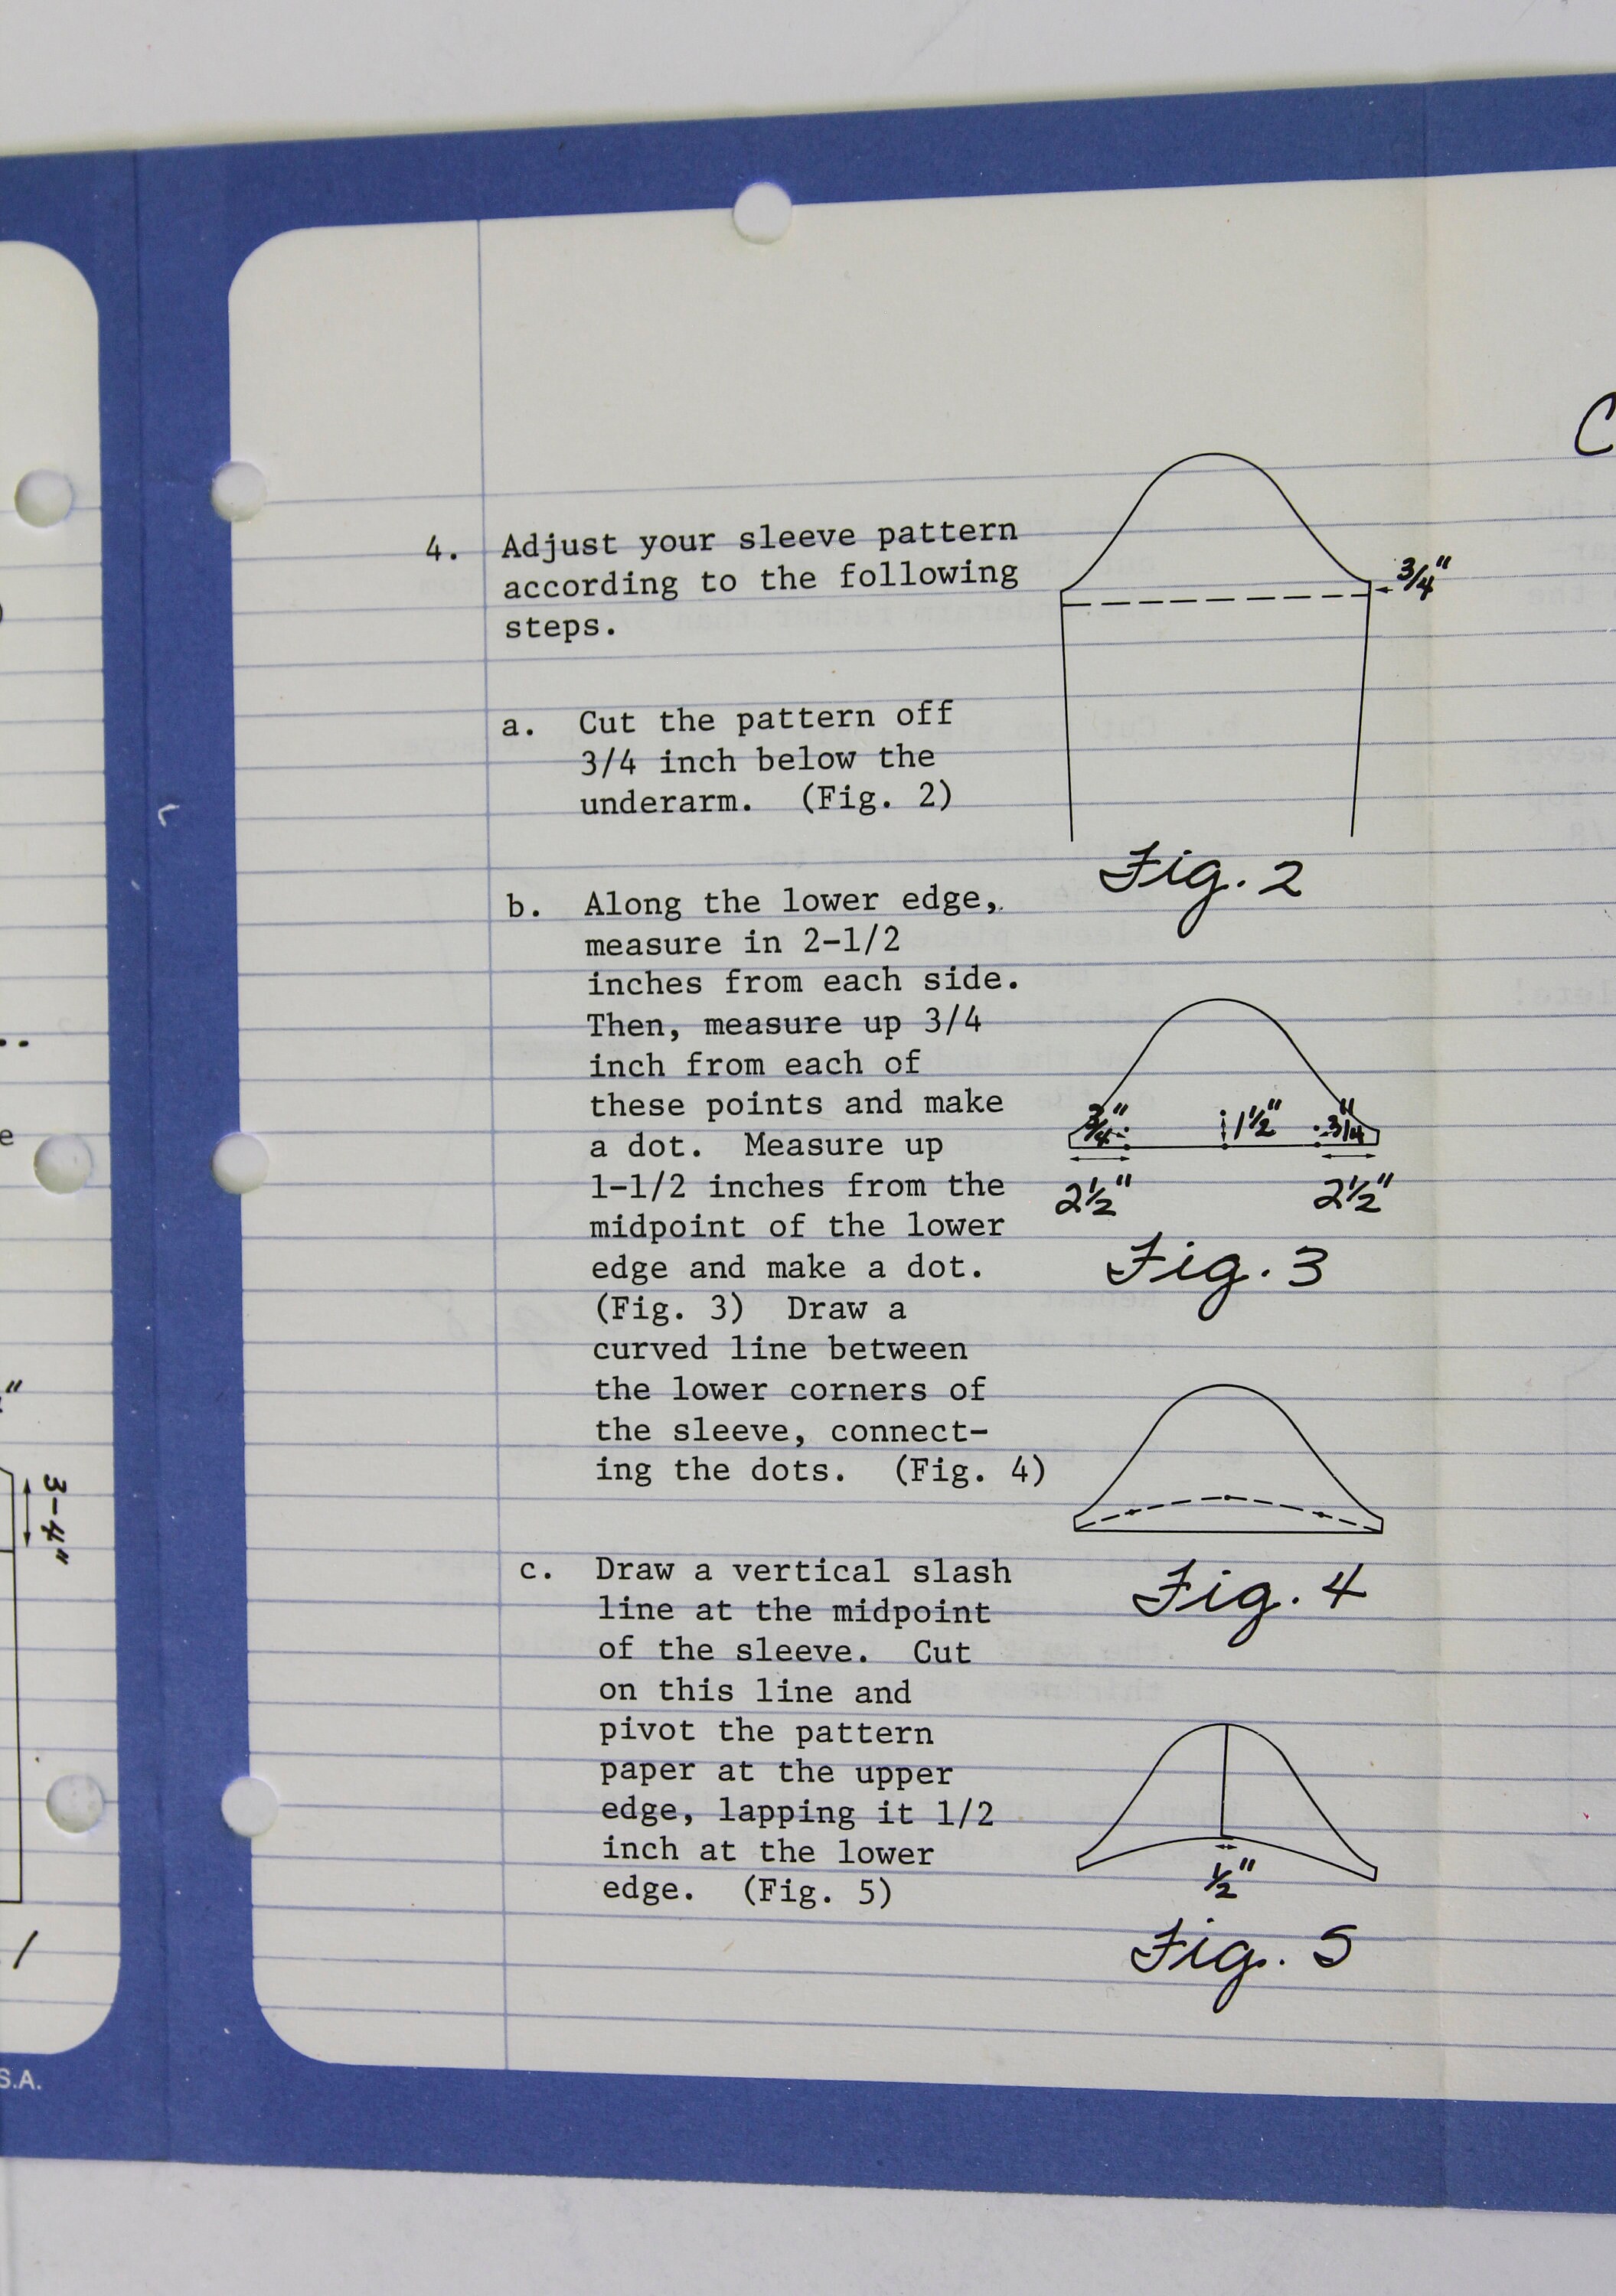 4. Adjust your sleeve pattern
according to the following
steps.
a. Cut the pattern off
3/4 inch below the
underarm. (Fig. 2)
3/4"
Fig. 2
b. Along the lower edge,
measure in 2-1/2
inches from each side.
Then, measure up 3/4
inch from each of
these points and make
a dot. Measure up
1-1/2 inches from the
midpoint of the lower
edge and make a dot.
(Fig. 3) Draw a
curved line between
the lower corners of
the sleeve, connect-
ing the dots. (Fig. 4)
3/4" 1 1/2" 3/4"
2 1/2" 2 1/2"
Fig. 3
Fig. 4
c. Draw a vertical slash
line at the midpoint
of the sleeve. Cut
on this line and
pivot the pattern
paper at the upper
edge, lapping it 1/2
inch at the lower
edge. (Fig. 5)
1/2"
Fig. 5
3-4"
S.A.